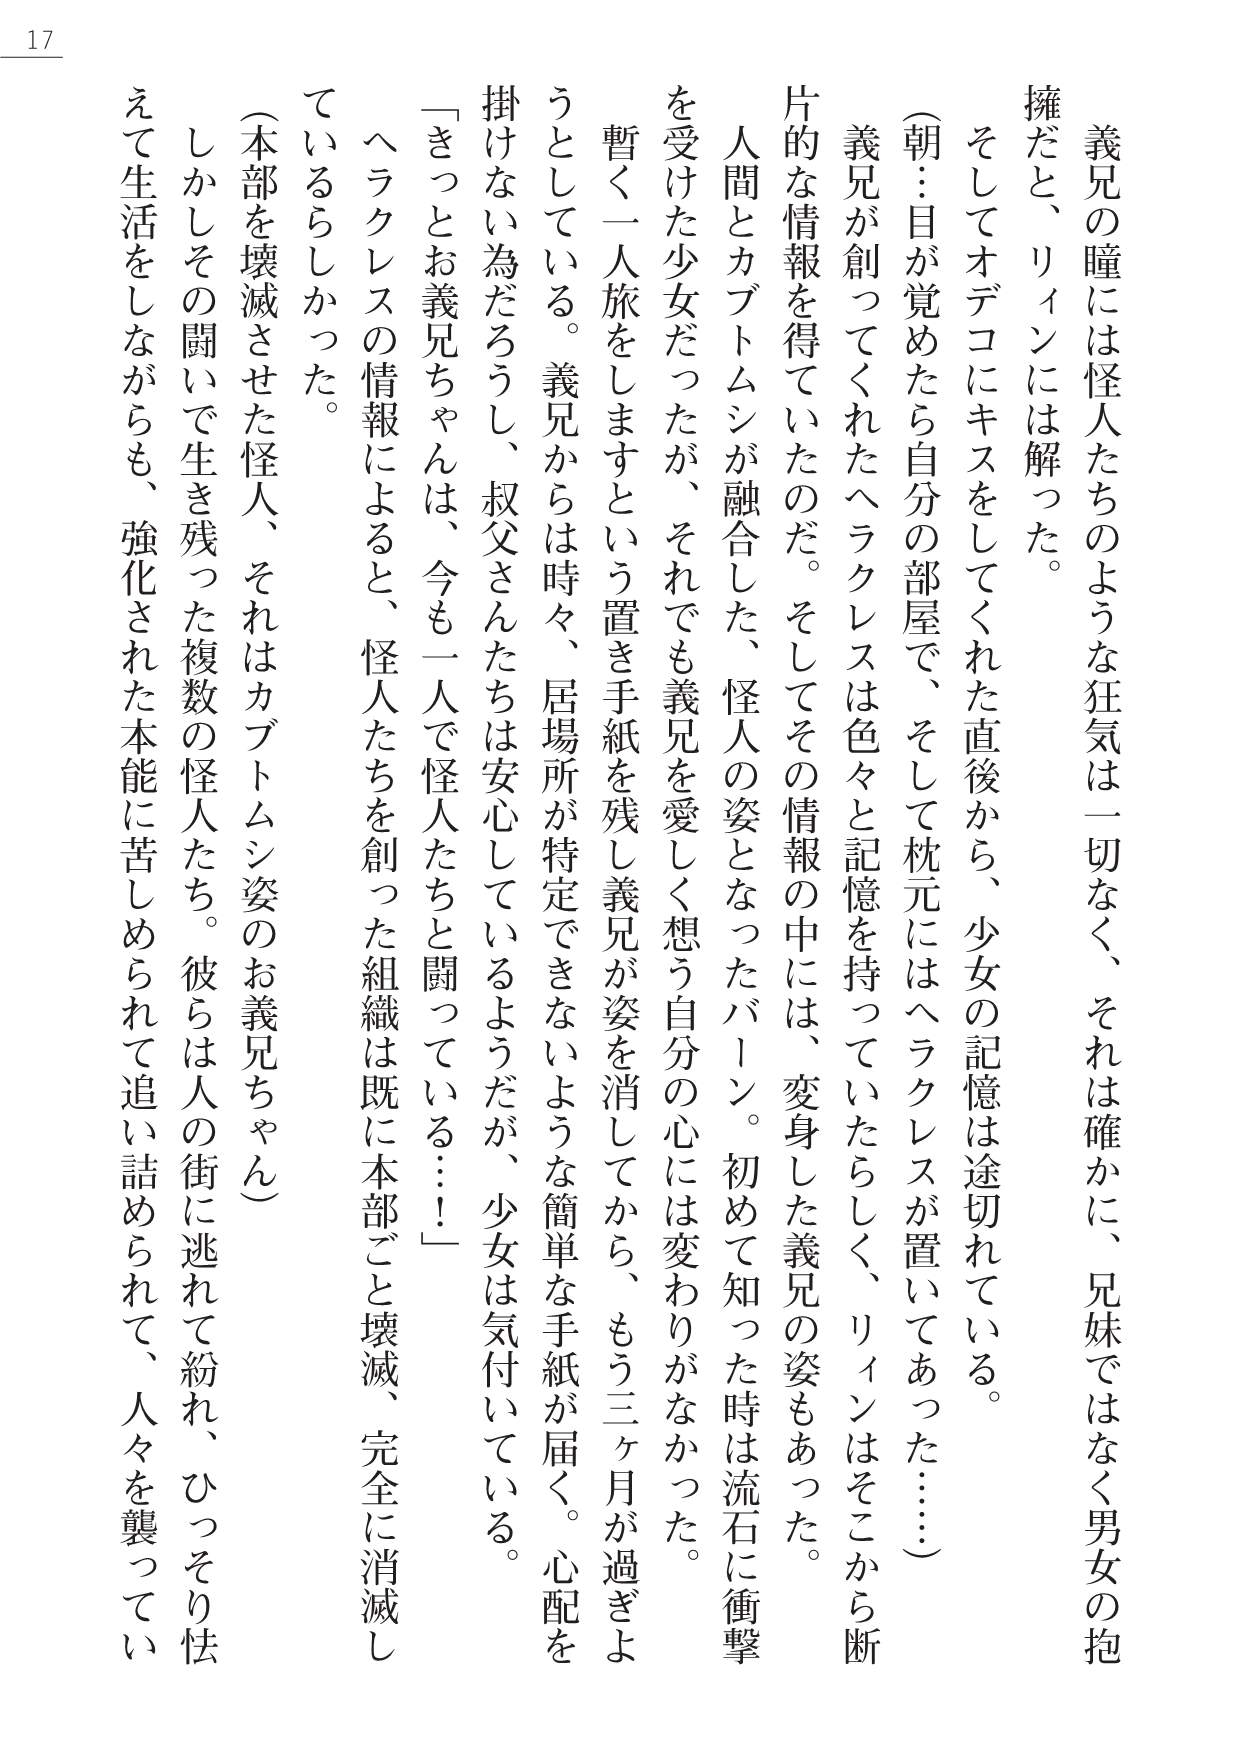 17
　義兄の瞳には怪人たちのような狂気は一切なく、それは確かに、兄妹ではなく男女の抱
擁だと、リィンには解った。
　そしてオデコにキスをしてくれた直後から、少女の記憶は途切れている。
（朝…目が覚めたら自分の部屋で、そして枕元にはヘラクレスが置いてあった……）
　義兄が創ってくれたヘラクレスは色々と記憶を持っていたらしく、リィンはそこから断
片的な情報を得ていたのだ。そしてその情報の中には、変身した義兄の姿もあった。
　人間とカブトムシが融合した、怪人の姿となったバーン。初めて知った時は流石に衝撃
を受けた少女だったが、それでも義兄を愛しく想う自分の心には変わりがなかった。
　暫く一人旅をしますという置き手紙を残し義兄が姿を消してから、もう三ヶ月が過ぎよ
うとしている。義兄からは時々、居場所が特定できないような簡単な手紙が届く。心配を
掛けない為だろうし、叔父さんたちは安心しているようだが、少女は気付いている。
「きっとお義兄ちゃんは、今も一人で怪人たちと闘っている…！」
　ヘラクレスの情報によると、怪人たちを創った組織は既に本部ごと壊滅、完全に消滅し
ているらしかった。
（本部を壊滅させた怪人、それはカブトムシ姿のお義兄ちゃん）
　しかしその闘いで生き残った複数の怪人たち。彼らは人の街に逃れて紛れ、ひっそり怯
えて生活をしながらも、強化された本能に苦しめられて追い詰められて、人々を襲ってい